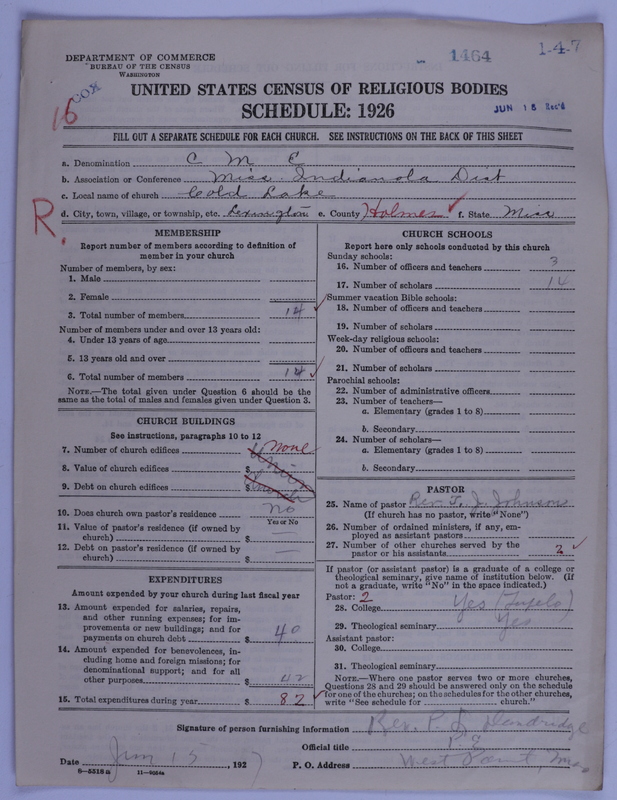 DEPARTMENT OF COMMERCE
BUREAU OF THE CENSUS
WASHINGTON
1464
1-4-7
COX
16
UNITED STATES CENSUS OF RELIGIOUS BODIES
SCHEDULE: 1926
JUN 15 Rec'd
FILL OUT A SEPARATE SCHEDULE FOR EACH CHURCH. SEE INSTRUCTIONS ON THE BACK OF THIS SHEET
a. Denomination C M E
b. Association or Conference Miss Indianola Dist
c. Local name of church Cold Lake
R.
d. City, town, village, or township, etc. Lexington e. County Holmes f. State Miss
MEMBERSHIP
Report number of members according to definition of
member in your church
Number of members, by sex:
1. Male
2. Female
3. Total number of members 14
Number of members under and over 13 years old:
4. Under 13 years of age
5. 13 years old and over
6. Total number of members 14
NOTE.—The total given under Question 6 should be the
same as the total of males and females given under Question 3.
CHURCH BUILDINGS
See instructions, paragraphs 10 to 12
7. Number of church edifices none
8. Value of church edifices $
9. Debt on church edifices $
10. Does church own pastor's residence No
Yes or No
11. Value of pastor's residence (if owned by
church) $ —
12. Debt on pastor's residence (if owned by
church) $ —
EXPENDITURES
Amount expended by your church during last fiscal year
13. Amount expended for salaries, repairs,
and other running expenses; for im-
provements or new buildings; and for
payments on church debt $ 40
14. Amount expended for benevolences, in-
cluding home and foreign missions; for
denominational support; and for all
other purposes $ 42
15. Total expenditures during year $ 82
CHURCH SCHOOLS
Report here only schools conducted by this church
Sunday schools:
16. Number of officers and teachers 3
17. Number of scholars 14
Summer vacation Bible schools:
18. Number of officers and teachers
19. Number of scholars
Week-day religious schools:
20. Number of officers and teachers
21. Number of scholars
Parochial schools:
22. Number of administrative officers
23. Number of teachers—
a. Elementary (grades 1 to 8)
b. Secondary
24. Number of scholars—
a. Elementary (grades 1 to 8)
b. Secondary
PASTOR
25. Name of pastor Rev. T. J. Johnson
(If church has no pastor, write "None")
26. Number of ordained ministers, if any, em-
ployed as assistant pastors
27. Number of other churches served by the
pastor or his assistants 2
If pastor (or assistant pastor) is a graduate of a college or
theological seminary, give name of institution below. (If
not a graduate, write "No" in the space indicated.)
Pastor: 2
28. College Yes
29. Theological seminary Yes
Assistant pastor:
30. College
31. Theological seminary
NOTE.—Where one pastor serves two or more churches,
Questions 28 and 29 should be answered only on the schedule
for one of the churches; on the schedules for the other churches,
write "See schedule for church."
Signature of person furnishing information Rev. P.
Official title P. E.
Date Jun 15, 1927 P. O. Address West Point, Miss
8-5518a 11-9054a